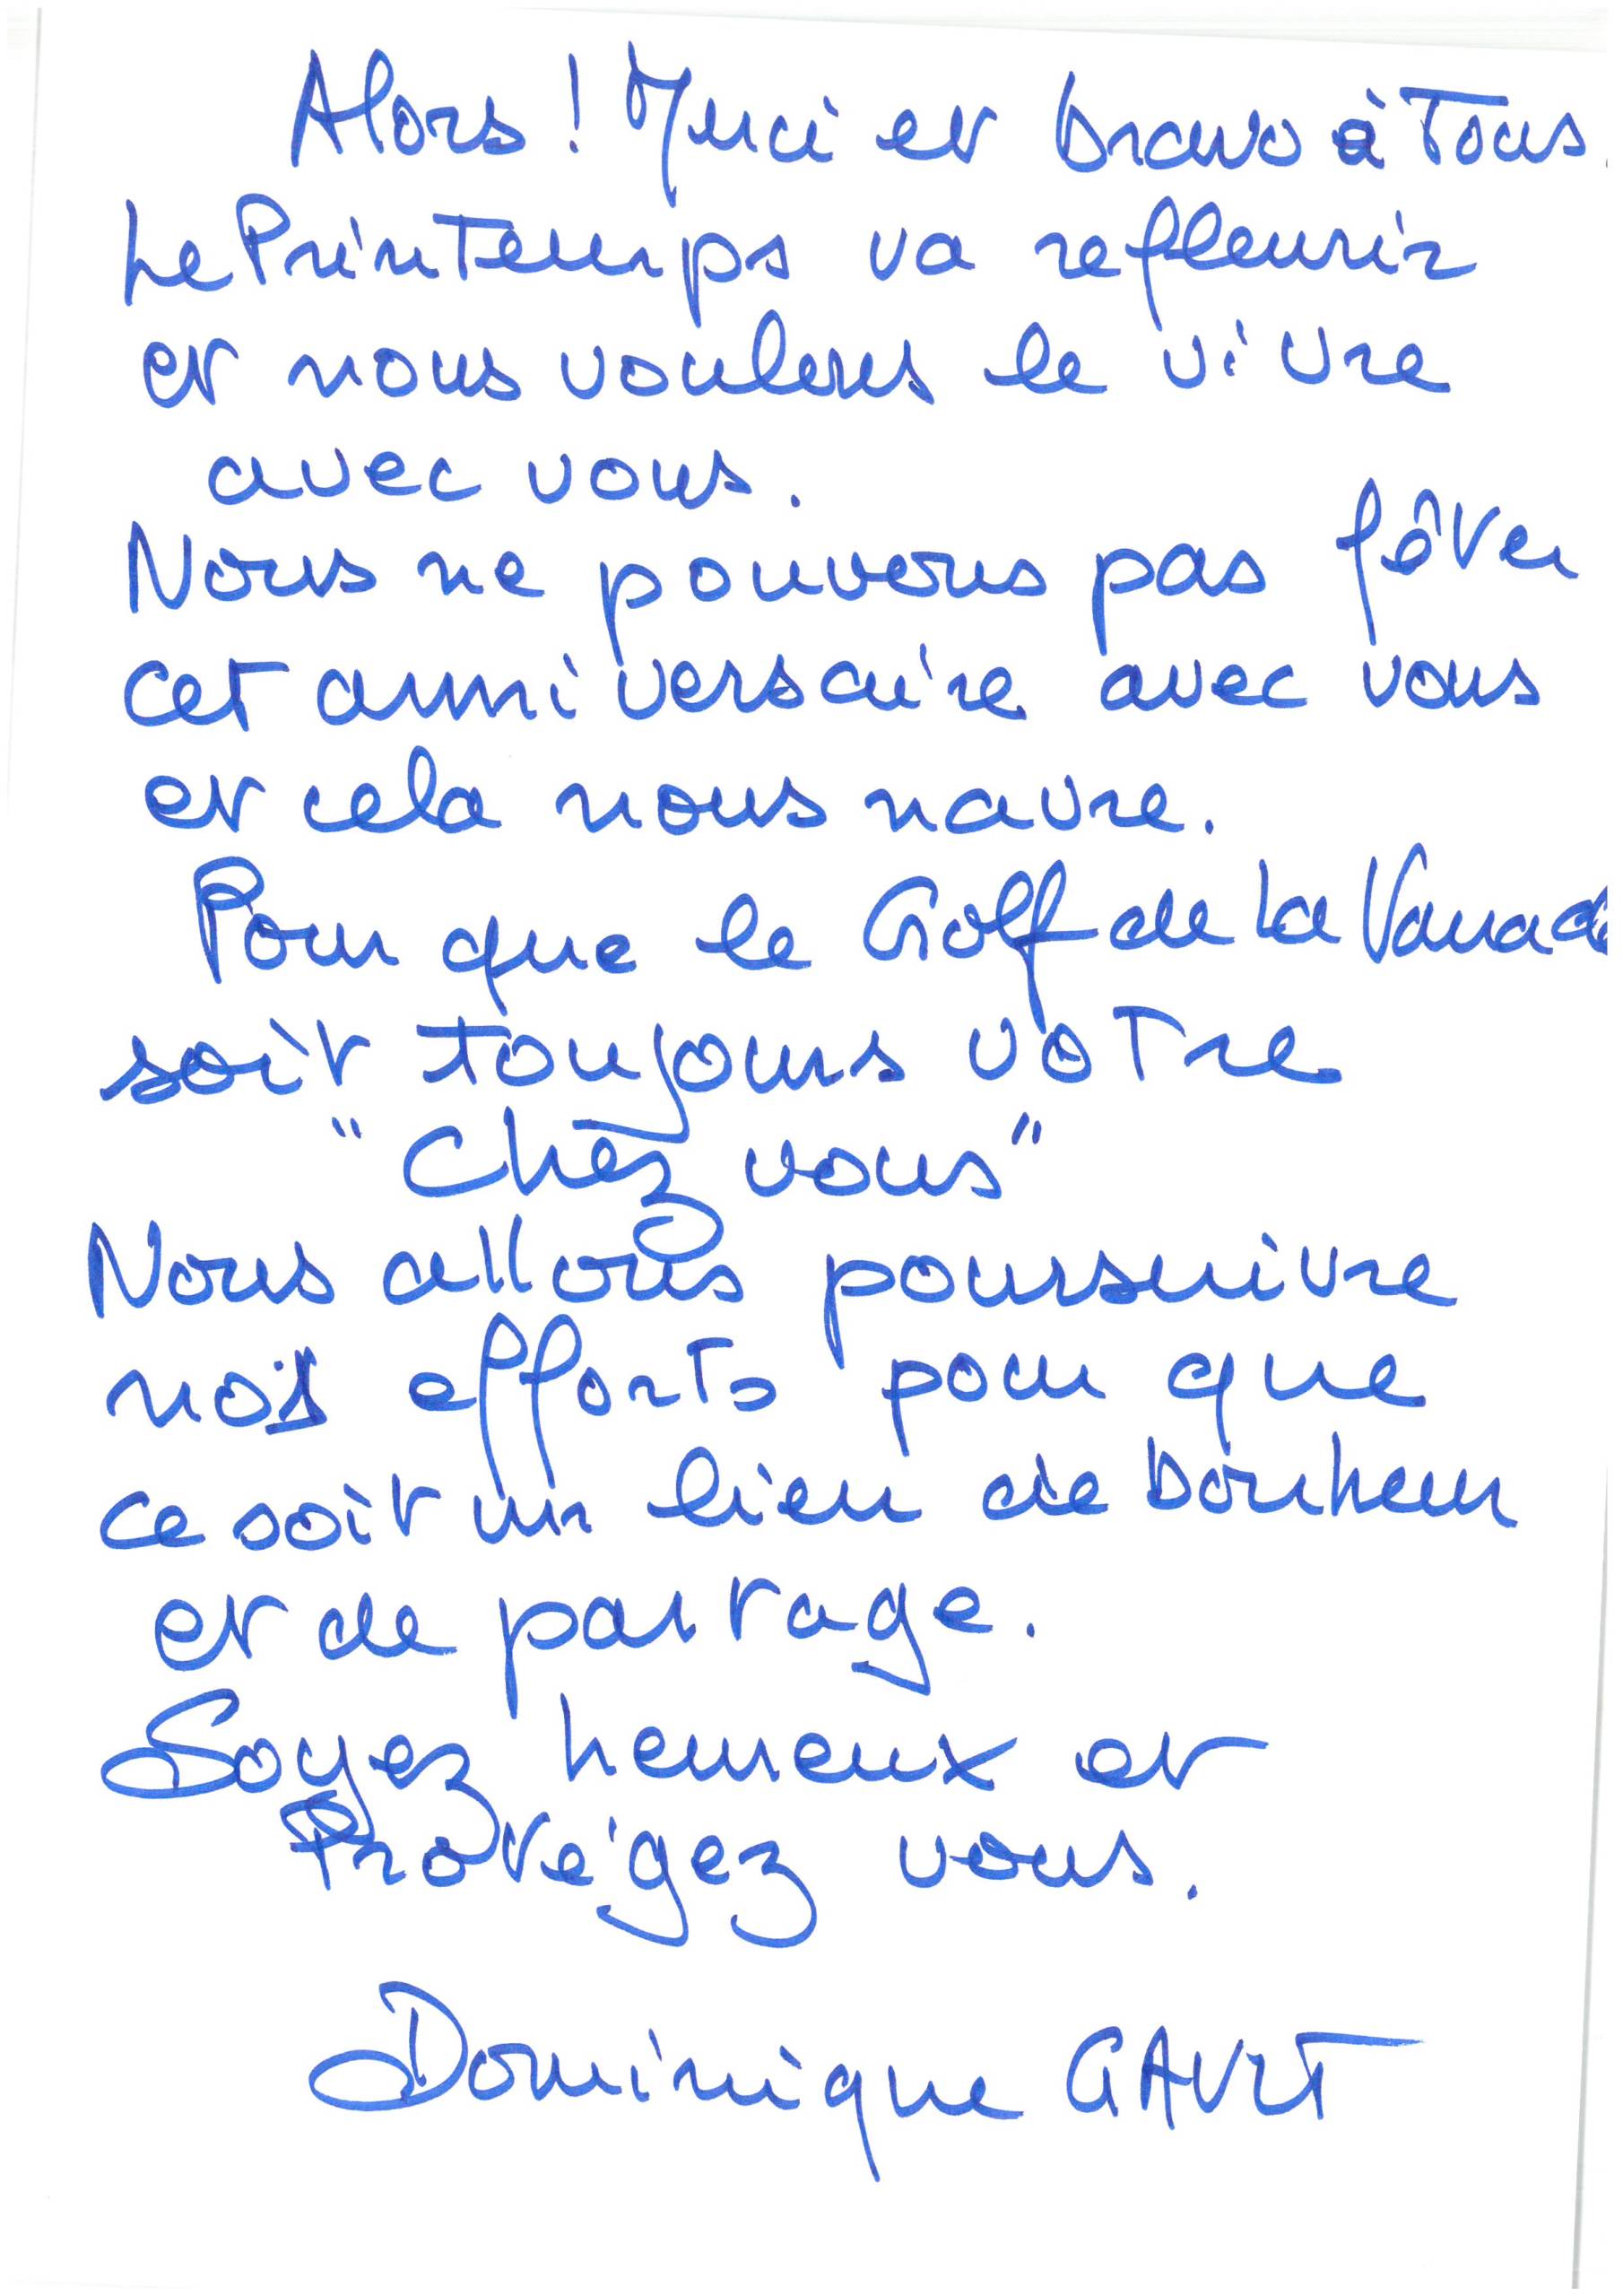 Alors ! Merci et bravo à Tous.
Le Printemps va refleurir
et nous voulons le vivre
avec vous.
Nous ne pouvons pas fêter
cet anniversaire avec vous
et cela nous navre.
Pour que le Golf de La
soit toujours votre
"Chez vous"
Nous allons poursuivre
nos efforts pour que
ce soit un lieu de bonheur
et de partage.
Soyez heureux et
Protégez vous.
Dominique